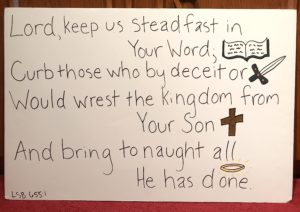 Lord, keep us steadfast in
Your Word;
Curb those who by deceit or
Would wrest the kingdom from
Your Son
And bring to naught all
He has done.
LSB 655:1